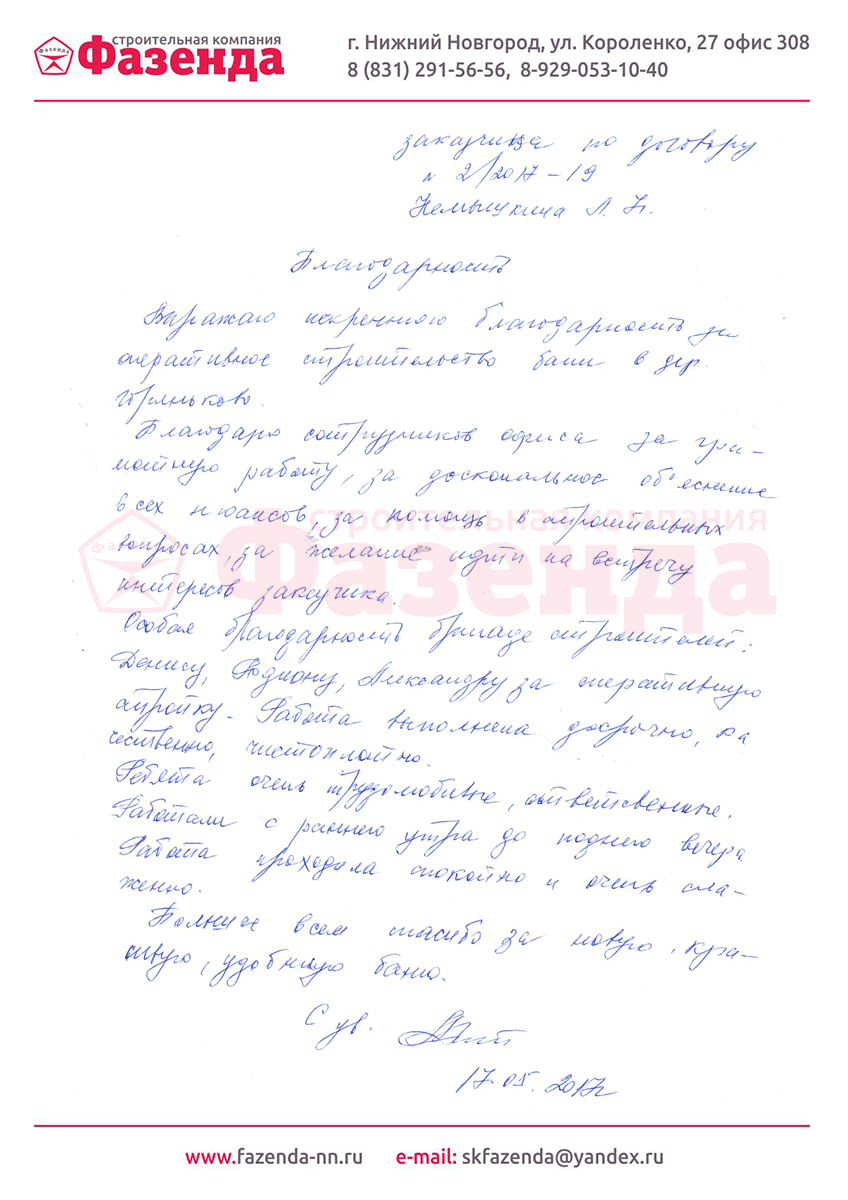 строительная компания
Фазенда
г. Нижний Новгород, ул. Короленко, 27 офис 308
8 (831) 291-56-56, 8-929-053-10-40
заказчика по договору
№ 2/2017-19
Л. Н.
Благодарность
Выражаю искреннюю благодарность за
оперативное строительство бани в дер.
Благодарю сотрудников офиса за гра-
мотную работу, за доскональное объяснение
всех нюансов, за помощь в строительных
вопросах, за желание идти на встречу
интересов заказчика.
Особая благодарность бригаде строителей:
Денису, Родиону, Александру за оперативную
стройку. Работа выполнена досрочно, ка
чественно, чистоплотно.
Ребята очень трудолюбивые, ответственные.
Работали с раннего утра до позднего вечера
Работа проходила спокойно и очень сла-
женно.
всем спасибо за новую, кра-
сивую, удобную баню.
С ув.
17.05.2017г
строительная компания
Фазенда
www.fazenda-nn.ru e-mail: skfazenda@yandex.ru